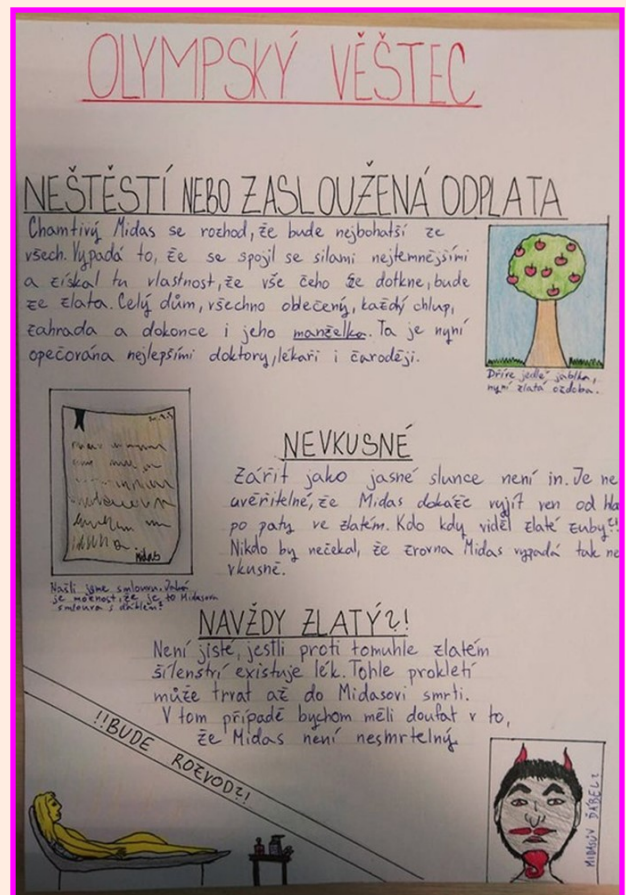 OLYMPSKÝ VĚŠTEC
NEŠTĚSTÍ NEBO ZASLOUŽENÁ ODPLATA
Chamtivý Midas se rozhod, že bude nejbohatší ze
všech. Vypadá to, že se spojil se silami nejtemnějšími
a získal tu vlastnost, že vše čeho že dotkne, bude
ze zlata. Celý dům, všechno oblečený, každý chlup,
zahrada a dokonce i jeho manželka. Ta je nyní
opečována nejlepšími doktory, lékaři i čaroději.
Dříve jedlé jablka,
nyní zlatá ozdoba.
NEVKUSNÉ
Zářit jako jasné slunce není in. Je ne
uvěřitelné, že Midas dokáže vyjít ven od hla
po paty ve zlatém. Kdo kdy viděl zlaté zuby?!
Nikdo by nečekal, že zrovna Midas vypadá tak ne
vkusně.
Midas
Našli jsme smlouvu. Jaká
je možnost, že je to Midasova
smlouva s ďáblem?
NAVŽDY ZLATÝ?!
Není jisté, jestli proti tomuhle zlatém
šílenství existuje lék. Tohle prokletí
může trvat až do Midasovi smrti.
V tom případě bychom měli doufat v to,
že Midas není nesmrtelný
!!BUDE ROZVOD?!
MIDASŮV ĎÁBEL?